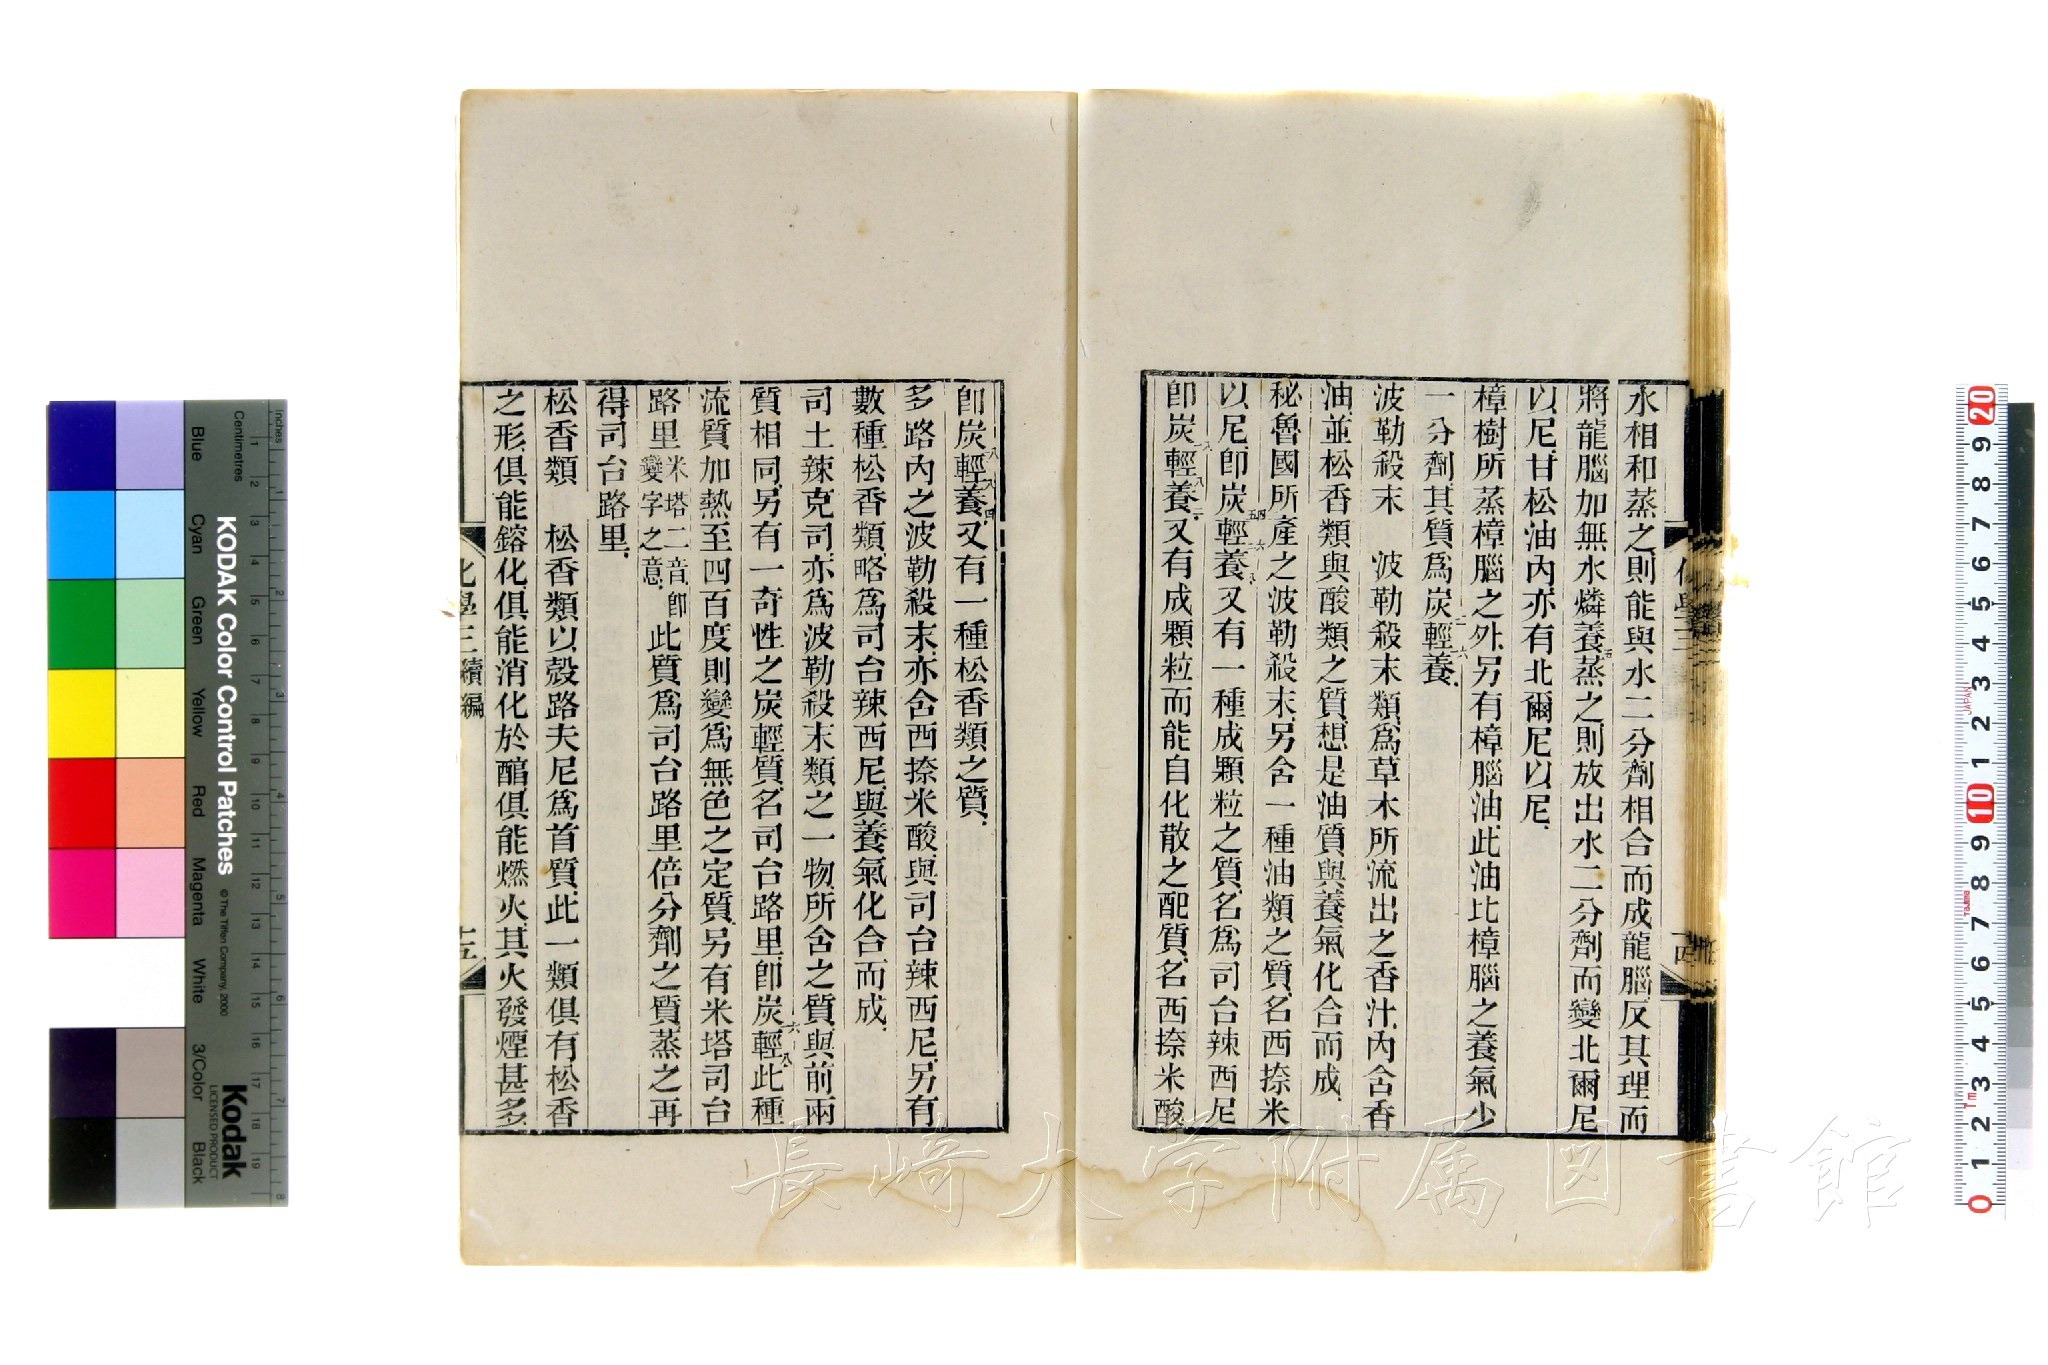 水相和蒸之、則能與水二分劑相合而成龍腦、反其理而
將龍腦加無水燐養五蒸之、則放出水二分劑而變北爾尼
以尼、甘松油內、亦有北爾尼以尼、
樟樹所蒸樟腦之外、另有樟腦油、此油比樟腦之養氣少
一分劑、其質爲炭二輕一六養、
波勒殺末　波勒殺末類、爲草木所流出之香汁、內含香
油、並松香類與酸類之質、想是油質與養氣化合而成、
秘魯國所產之波勒殺末、另含一種油類之質、名西捺米
以尼、卽炭五四輕二六養八、又有一種成顆粒之質、名爲司台辣西尼
卽炭一八輕八養二、又有成顆粒而能自化散之配質、名西捺米酸
卽炭一八輕八養四、又有一種松香類之質、
多路內之波勒殺末、亦含西捺米酸與司台辣西尼、另有
數種松香類、略爲司台辣西尼與養氣化合而成、
司土辣克司、亦爲波勒殺末類之一物、所含之質、與前兩
質相同、另有一奇性之炭輕質、名司台路里、卽炭一六輕八、此種
流質加熱至四百度、則變爲無色之定質、另有米塔司台
路里米塔二音、卽變字之意、此質爲司台路里倍分劑之質、蒸之再
得司台路里、
松香類　松香類以殼路夫尼爲首質、此一類俱有松香
之形、俱能鎔化、俱能消化於醕、俱能燃火、其火發煙甚多、
化學三續編
十五
長崎大学附属図書館
KODAK Color Control Patches
© The Tiffen Company, 2000
Kodak
LICENSED PRODUCT
Inches
Centimetres
Blue
Cyan
Green
Yellow
Red
Magenta
White
3/Color
Black
JAPAN
Tajima